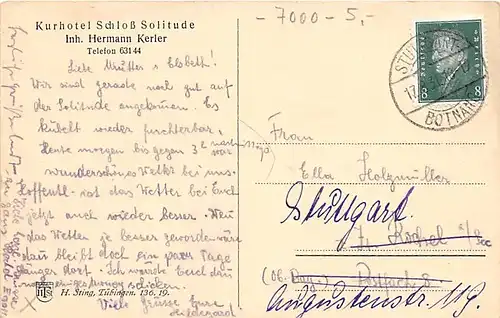 - 7000 - 5,-
Kurhotel Schloß Solitude
Inh. Hermann Kerler
Telefon 63144
Liebe Mutter & Elsbeth!
Wir sind gerade noch gut auf
der Solitude angekommen. Es
kübelt wieder furchtbar,
heute morgen bis gegen 3h nachm.
war
wunderschönes Wetter bei uns.
Hoffentl. ist das Wetter bei Euch
jetzt auch wieder besser. Wenn
das Wetter je besser geworden wäre
dann bleibt doch ein paar Tage
länger dort. Ich würde Euch dann
schicken.
Viele Grüsse Eure
Hildegard
H. Sting, Tübingen. 136. 19.
Deutsches Reich
8 8
STUTTGART
BOTNANG
Frau
Ella Holzmüller
Stuttgart
Kochel a/See
(Ob. Bay.) Postfach 8
Augustenstr. 119.